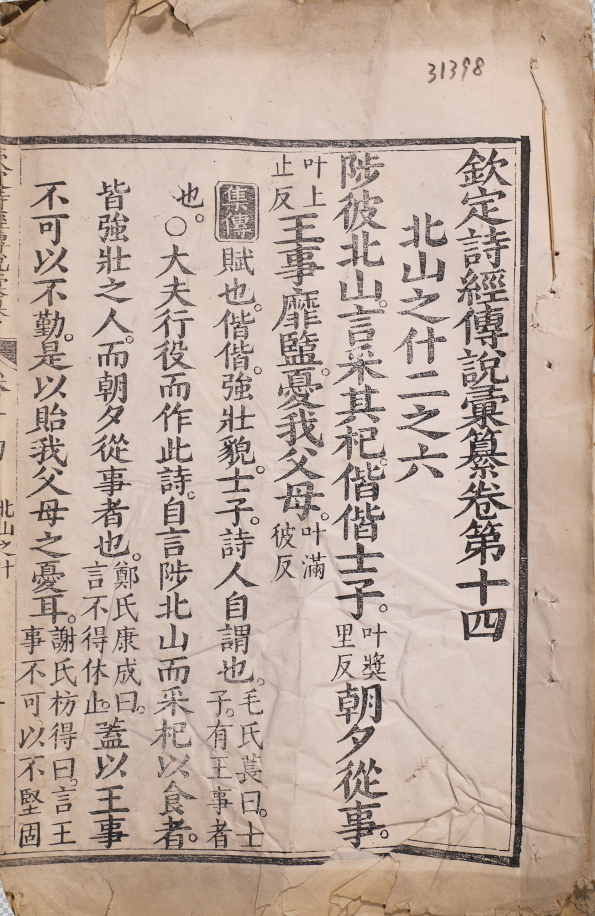 31398
欽定詩經傳說彙纂卷第十四
北山之什二之六
陟彼北山。言采其杞。偕偕士子。叶獎里反朝夕從事。
叶上止反王事靡盬。憂我父母。叶滿彼反
集傳賦也。偕偕。強壯貌。士子。詩人自謂也。毛氏萇曰。士子。有王事者
也。○大夫行役而作此詩。自言陟北山而采杞以食者。
皆強壯之人。而朝夕從事者也。鄭氏康成曰。言不得休止。蓋以王事
不可以不勤。是以貽我父母之憂耳。謝氏枋得曰。言王事不可以不堅固
北山之什